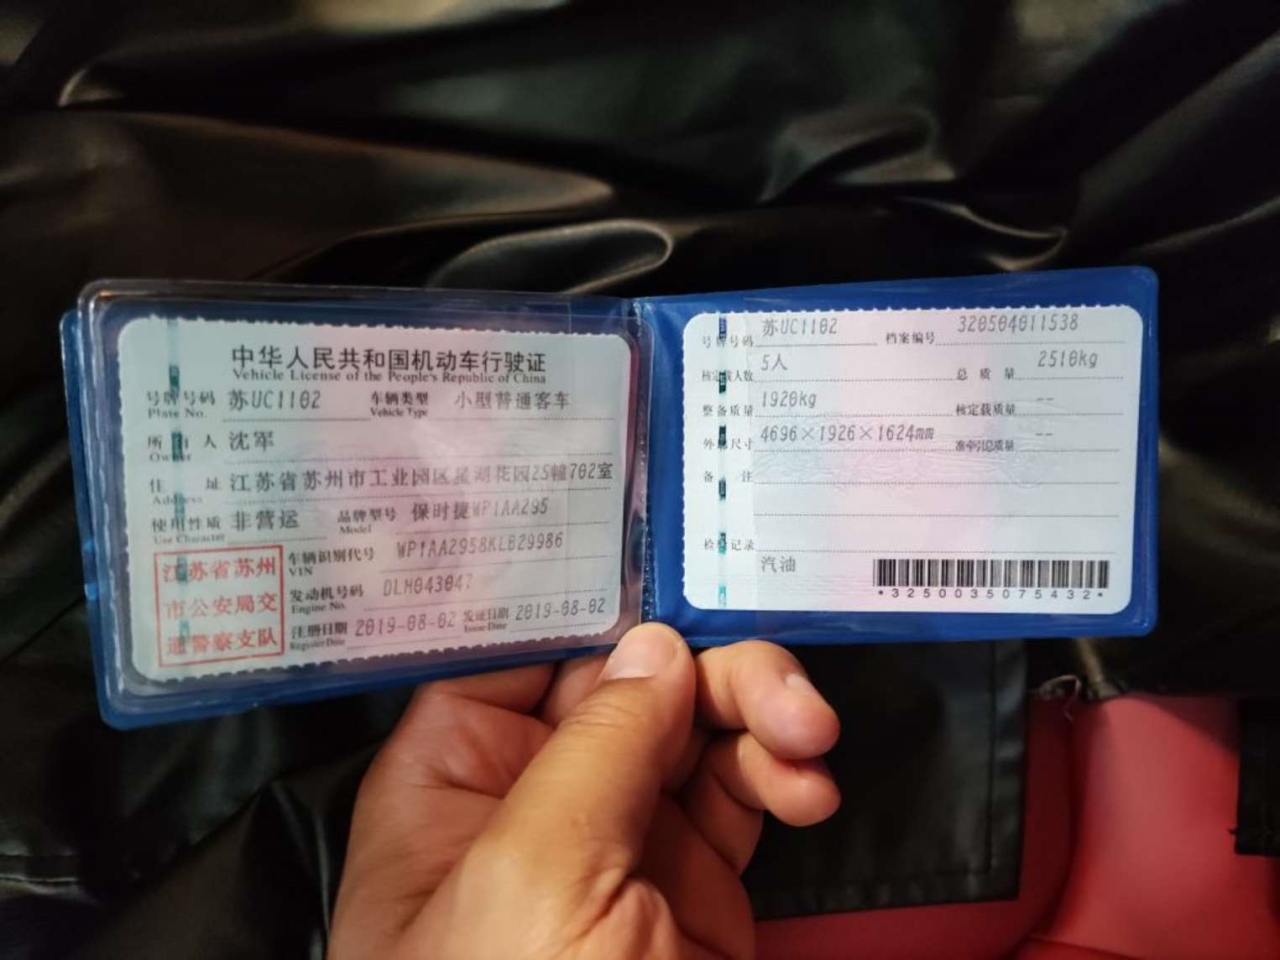 中华人民共和国机动车行驶证
Vehicle License of the People's Republic of China
号牌号码 苏UC1102 车辆类型 小型普通客车
Plate No. Vehicle Type
所有人 沈军
Owner
住址 江苏省苏州市工业园区星湖花园25幢702室
Address
使用性质 非营运 品牌型号 保时捷WP1AA295
Use Character Model
江苏省苏州
市公安局交
通警察支队
车辆识别代号 WP1AA2958KLB29986
VIN
发动机号码 DLH043047
Engine No.
注册日期 2019-08-02 发证日期 2019-08-02
Register Date Issue Date
号牌号码 苏UC1102 档案编号 320504011538
核定载人数 5人 总质量 2510kg
整备质量 1920kg 核定载质量 --
外廓尺寸 4696×1926×1624 准牵引总质量 --
备注
检验记录
汽油
*3250035075432*